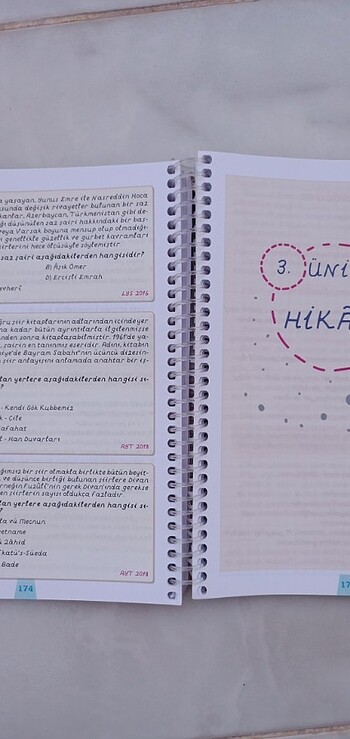 yaşayan, Yunus Emre ile Nasreddin Hoca
sunda değişik rivayetler bulunan bir saz
kanlar, Azerbaycan, Türkmenistan gibi de-
ği düşünülen saz şairi hakkındaki bir baş-
veya Varsak boyuna mensup olup olmadığı-
genellikle güzellik ve gurbet kavramları
iirlerini hece ölçüsüyle söylemiştir.
saz şairi aşağıdakilerden hangisidir?
B) Âşık Ömer
D) Ercişli Emrah
evheri
LYS 2016
ğru şiir kitaplarının adlarından içindeyer
na kadar bütün ayrıntılarla ilgilenmişse
nden sonra kitaplaşabilmiştir. 1961'de ya-
, şairin en tanınmış eseridir. Adını, kitabın
iye'de Bayram Sabahı"nın üçüncü dizesin-
şiir anlayışını anlamada anahtar bir iş-
lan yerlere aşağıdakilerden hangisi
?
- Kendi Gök Kubbemiz
- Çile
afahat
- Han Duvarları
AYT 2018
ğımsız bir şiir olmakla birlikte bütün beyit-
ve düşünce birliği bulunan şiirlere Divan
rneğin Fuzûlî'nin gerek Divan'ında gerekse
en şiirlerin sayısı oldukça fazladır.
lan yerlere aşağıdakilerden hangisi
?
la vü Mecnun
yetname
ü Zâhid
ikatü's-Süeda
Bade
AYT 2018
174
3. ÜNİ
HİKÂ
17